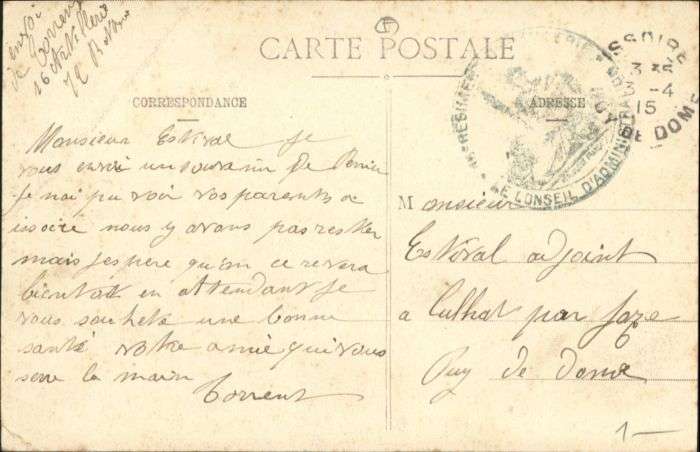 envoi
de Torrent
16 Artillerie
CARTE POSTALE
CORRESPONDANCE
ADRESSE
ISSOIRE
3-4
15
PUY DE DOME
CONSEIL D'ADMINISTRA
Monsieur Estival je
vous envoi un souvenir de
je nai pu voir vos parents a
issoire nous y avons pas rester
mais jespere qu'on ce revera
bientot en attendant je
vous souhete une bonne
santé votre amie qui vous
sere la main
Torrent
Monsieur
Estival adjoint
a Culhat par Joze
Puy de dome
1